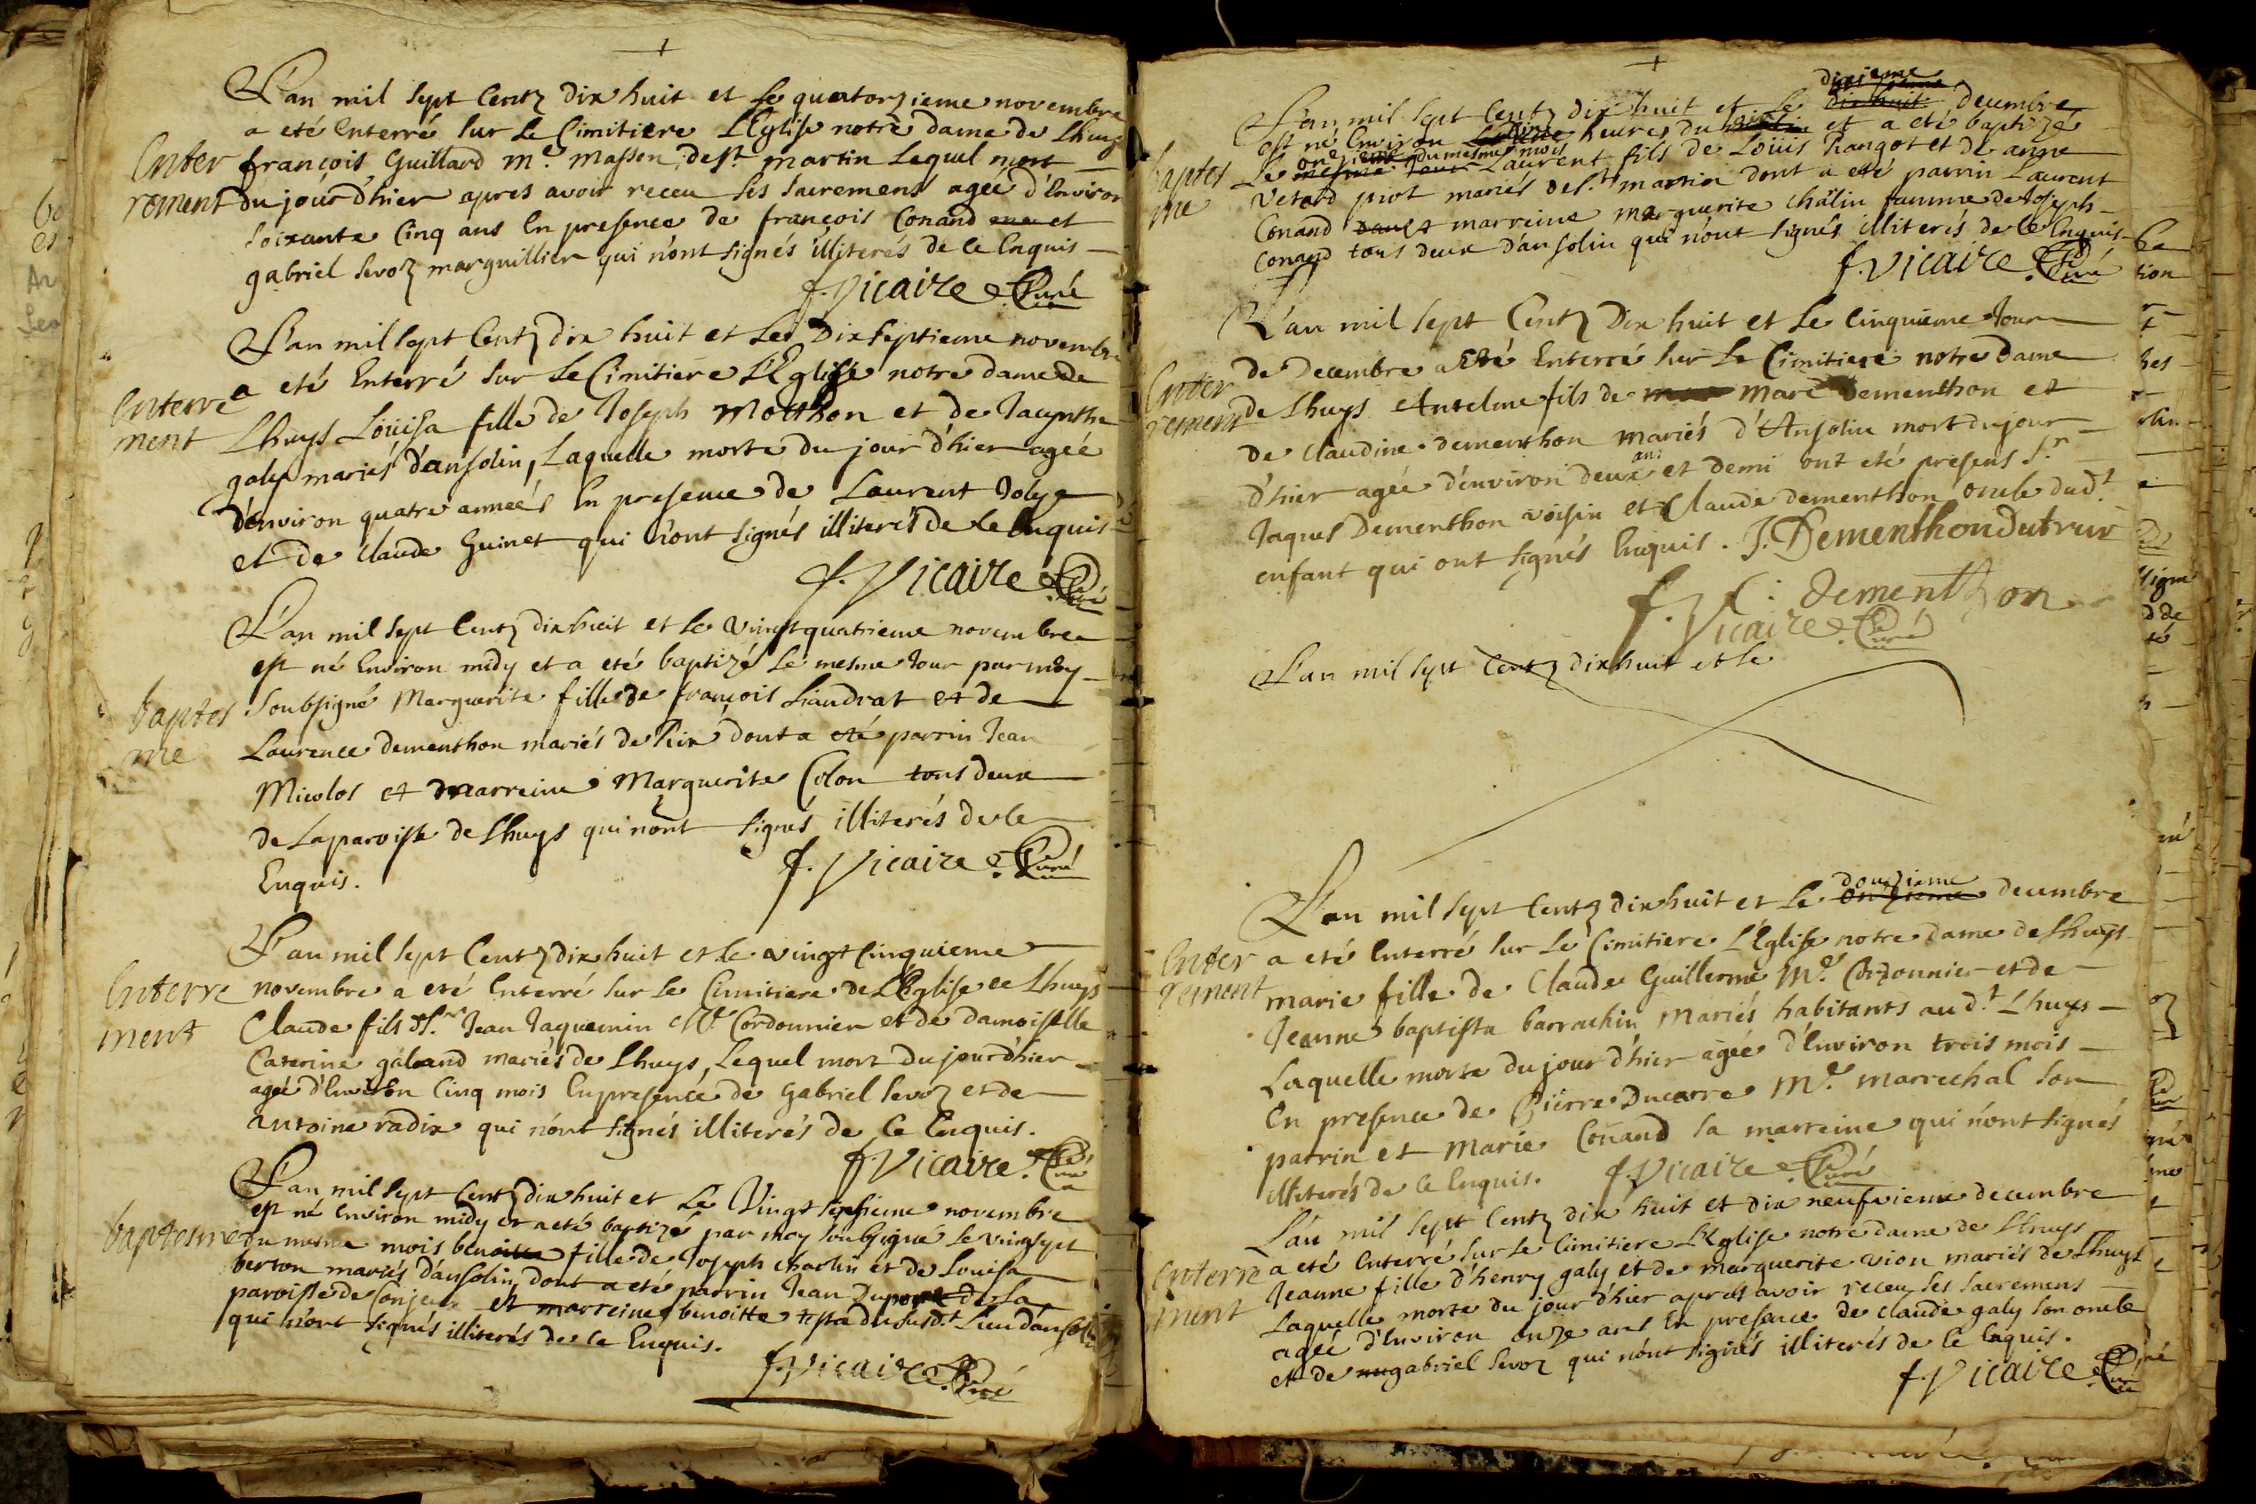 L'an mil sept Centz dix huit et le quatorzieme novembre
a eté Enterré sur le Cimitiere L'Eglise notre dame de Lhuys
Enter
françois Guillard me. Masson de st. martin Lequel mort
rement
du jour d'hier apres avoir receu ses sacremens ageé d'Environ
soixante Cinq ans En presence de françois Conand et
gabriel sevoz marguillier qui n'ont signés illiterés de ce Enquis
f. Vicaire Curé
L'an mil sept Centz dix huit et le Dixseptieme novembre
a eté Enterré sur Le Cimitiere L'Eglise notre dame de
Enterre
ment
Lhuys Louisa fille de Joseph Motthon et de Jacynthe
galy mariés d'ansolin, Laquelle morte du jour d'hier ageé
d'environ quatre anneés En presence de Laurent Joly
et de Claude Guinet qui n'ont signés illiterés de ce Enquis
f. Vicaire Curé
L'an mil sept Centz dixhuit et le vingtquatrieme novembre
est né Environ midy et a eté baptizé Le mesme Jour par moy
baptes
me
soubsigné Marguerite fille de françois Liaudrat et de
Laurence dementhon mariés de Rix dont a eté parrin Jean
Micolos et marreine Marguerite Colon tous deux
de Laparoisse de Lhuys qui n'ont signés illiterés de ce
Enquis.
f. Vicaire Curé
L'an mil sept Centz dix huit et le vingt Cinquieme
Enterre
ment
novembre a eté Enterré sur Le Cimitiere de L'Eglise de Lhuys
Claude fils d Sr. Jean Jaquemin Me. Cordonnier et de damoiselle
Caterine galand mariés de Lhuys, Lequel mort du jour d'hier
ageé d'Environ Cinq mois En presence de Gabriel sevoz et de
antoine radix qui n'ont signés illiterés de Ce Enquis.
f. Vicaire Curé
L'an mil sept Centz dix huit et Le Vingt septieme novembre
est né Environ midy et a eté baptizé par moy soubsigné Le vingt sept
baptesme
du mesme mois benoitte fille de Joseph charlin et de Louisa
berton mariés d'ansolin, dont a eté parrin Jean Duport de La
paroisse de Conjeux et marreine benoitte testa du susdt. Lieu d'ansolin
qui n'ont signés illiterés de ce Enquis.
f. Vicaire Curé
L'an mil sept Centz dix huit et Le dixieme decembre
est né Environ heures du et a eté baptizé
baptes
me
Le onzieme du mesme mois Laurent fils de Louis Rangot et de anne
Vetard piot mariés de st. martin dont a eté parrin Laurent
Conand et marreine Marguerite Châlin famme de Joseph
Conand tous deux d'ansolin qui n'ont signés illiterés de ce Enquis
f. Vicaire Curé
L'an mil sept Centz Dix huit et Le Cinquieme Jour
de Decembre a Eté Enterré sur Le Cimitiere notre Dame
Enter
rement
de Lhuys Antelme fils de Marc Dementhon et
de Claudine dementhon mariés d'Ansolin mort du jour
d'hier ageé d'environ deux ans et demi ont eté presens Sr.
Jaques Dementhon voisin et Claude dementhon oncle dudt.
enfant qui ont signés Enquis. J. Dementhon Dutrux
C. dementhon
f. Vicaire Curé
L'an mil sept Centz dix huit et le
L'an mil sept Centz dix huit et Le douzieme decembre
Enter
rement
a eté Enterré sur Le Cimitiere L'Eglise notre dame de Lhuys
marie fille de Claude Guillerme Me. Cordonnier et de
Jeanne baptista barrachin Mariés habitants au dt. Lhuys
Laquelle morte du jour d'hier ageé d'Environ trois mois
En presence de Pierre Ducarre Me. marrechal son
parrin et Marie Conand sa marreine qui n'ont signés
illiterés de Ce Enquis. f. Vicaire Curé
L'an mil sept Centz dix huit et dix neufvieme decembre
Enterre
ment
a eté Enterré sur Le Cimitiere L'Eglise notre dame de Lhuys
Jeanne fille d'henry galy et de marguerite vion mariés de Lhuys
Laquelle morte du jour d'hier apres avoir receu ses sacremens
ageé d'Environ onze ans En presence de Claude galy son oncle
et de gabriel sevoz qui n'ont signés illiterés de Ce Enquis.
f. Vicaire Curé